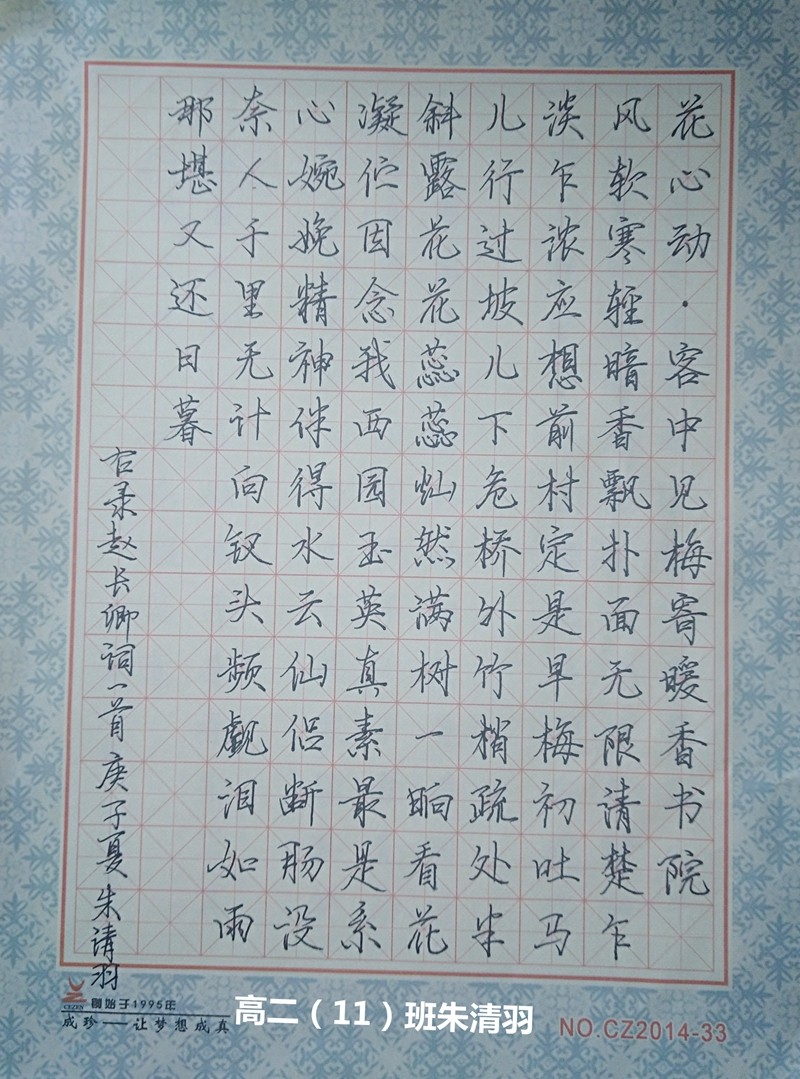 花心动·客中见梅寄暖香书院
风软寒轻暗香飘扑面无限清楚乍
淡乍浓应想前村定是早梅初吐马
儿行过坡儿下危桥外竹梢疏处半
斜露花花蕊蕊灿然满树一晌看花
凝伫因念我西园玉英真素最是系
心婉娩精神伴得水云仙侣断肠没
奈人千里无计向钗头频觑泪如雨
那堪又还日暮
右录赵长卿词一首庚子夏朱清羽
CZZEN 創始于1995年
成珍——让梦想成真
高二（11）班朱清羽
NO.CZ2014-33